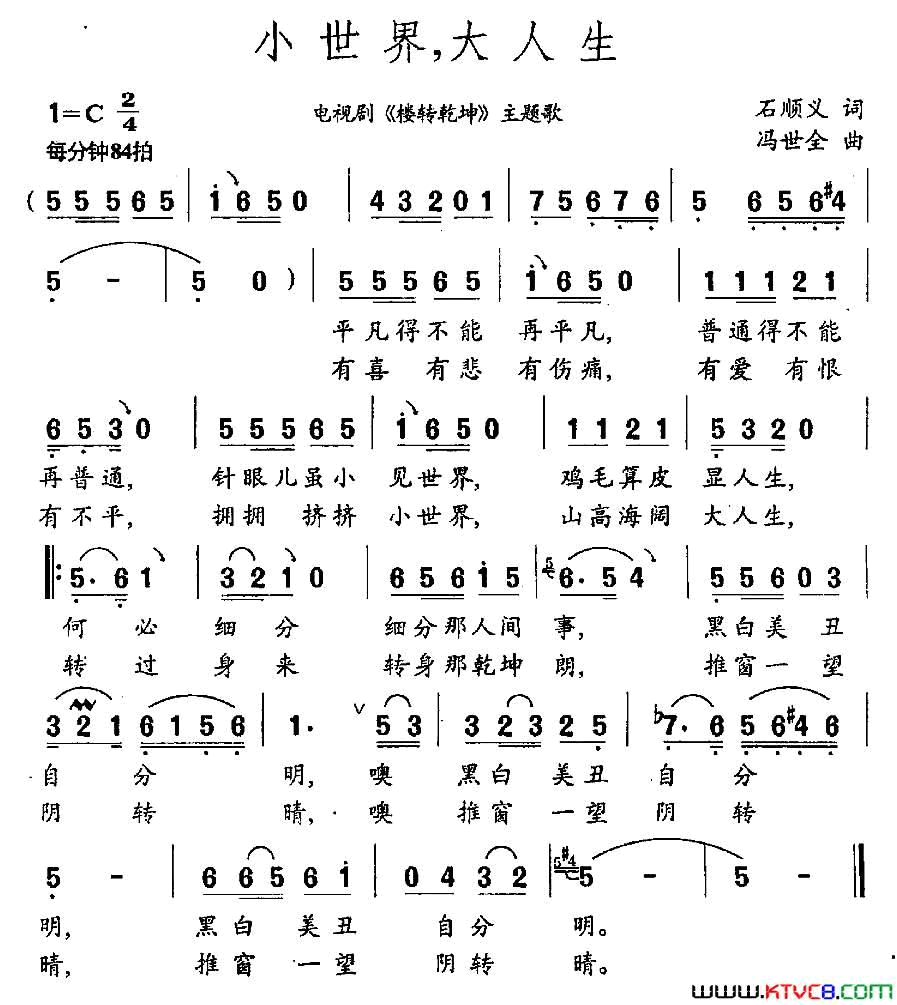 小世界,大人生
1=C 2/4
电视剧《楼转乾坤》主题歌
石顺义 词
每分钟84拍
冯世全 曲
( 5 5 5 6 5 | 1 6 5 0 | 4 3 2 0 1 | 7 5 6 7 6 | 5 6 5 6 #4 |
5 - | 5 0 ) | 5 5 5 6 5 | 1 6 5 0 | 1 1 1 2 1 |
平凡得不能 再平凡, 普通得不能
有喜 有悲 有伤痛, 有爱 有恨
6 5 3 0 | 5 5 5 6 5 | 1 6 5 0 | 1 1 2 1 | 5 3 2 0 |
再普通, 针眼儿虽小 见世界, 鸡毛算皮 显人生,
有不平, 拥拥 挤挤 小世界, 山高海阔 大人生,
‖: 5· 6 1 | 3 2 1 0 | 6 5 6 1 5 | 5 6· 5 4 | 5 5 6 0 3 |
何必 细分 细分那人间 事, 黑白美丑
转过 身来 转身那乾坤 朗, 推窗一望
3 2 1 6 1 5 6 | 1· ∨ 5 3 | 3 2 3 2 5 | b7· 6 5 6 #4 6 |
自分 明, 噢 黑白 美丑 自分
阴转 晴, 噢 推窗 一望 阴转
5 - | 6 6 5 6 1 | 0 4 3 2 | 5 #4 5 - | 5 - ‖
明, 黑白 美丑 自分 明。
晴, 推窗 一望 阴转 晴。
www.KTVC8.com